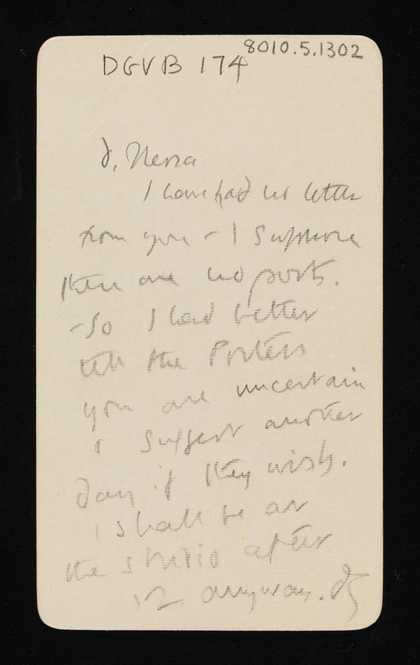 8010.5.1302
DGVB 174
d, Nessa
I have had no letter
from you - I suppose
there are no posts.
- So I had better
tell the Porters
you are uncertain
& suggest another
day if they wish.
I shall be at
the studio after
12 anyway. DG